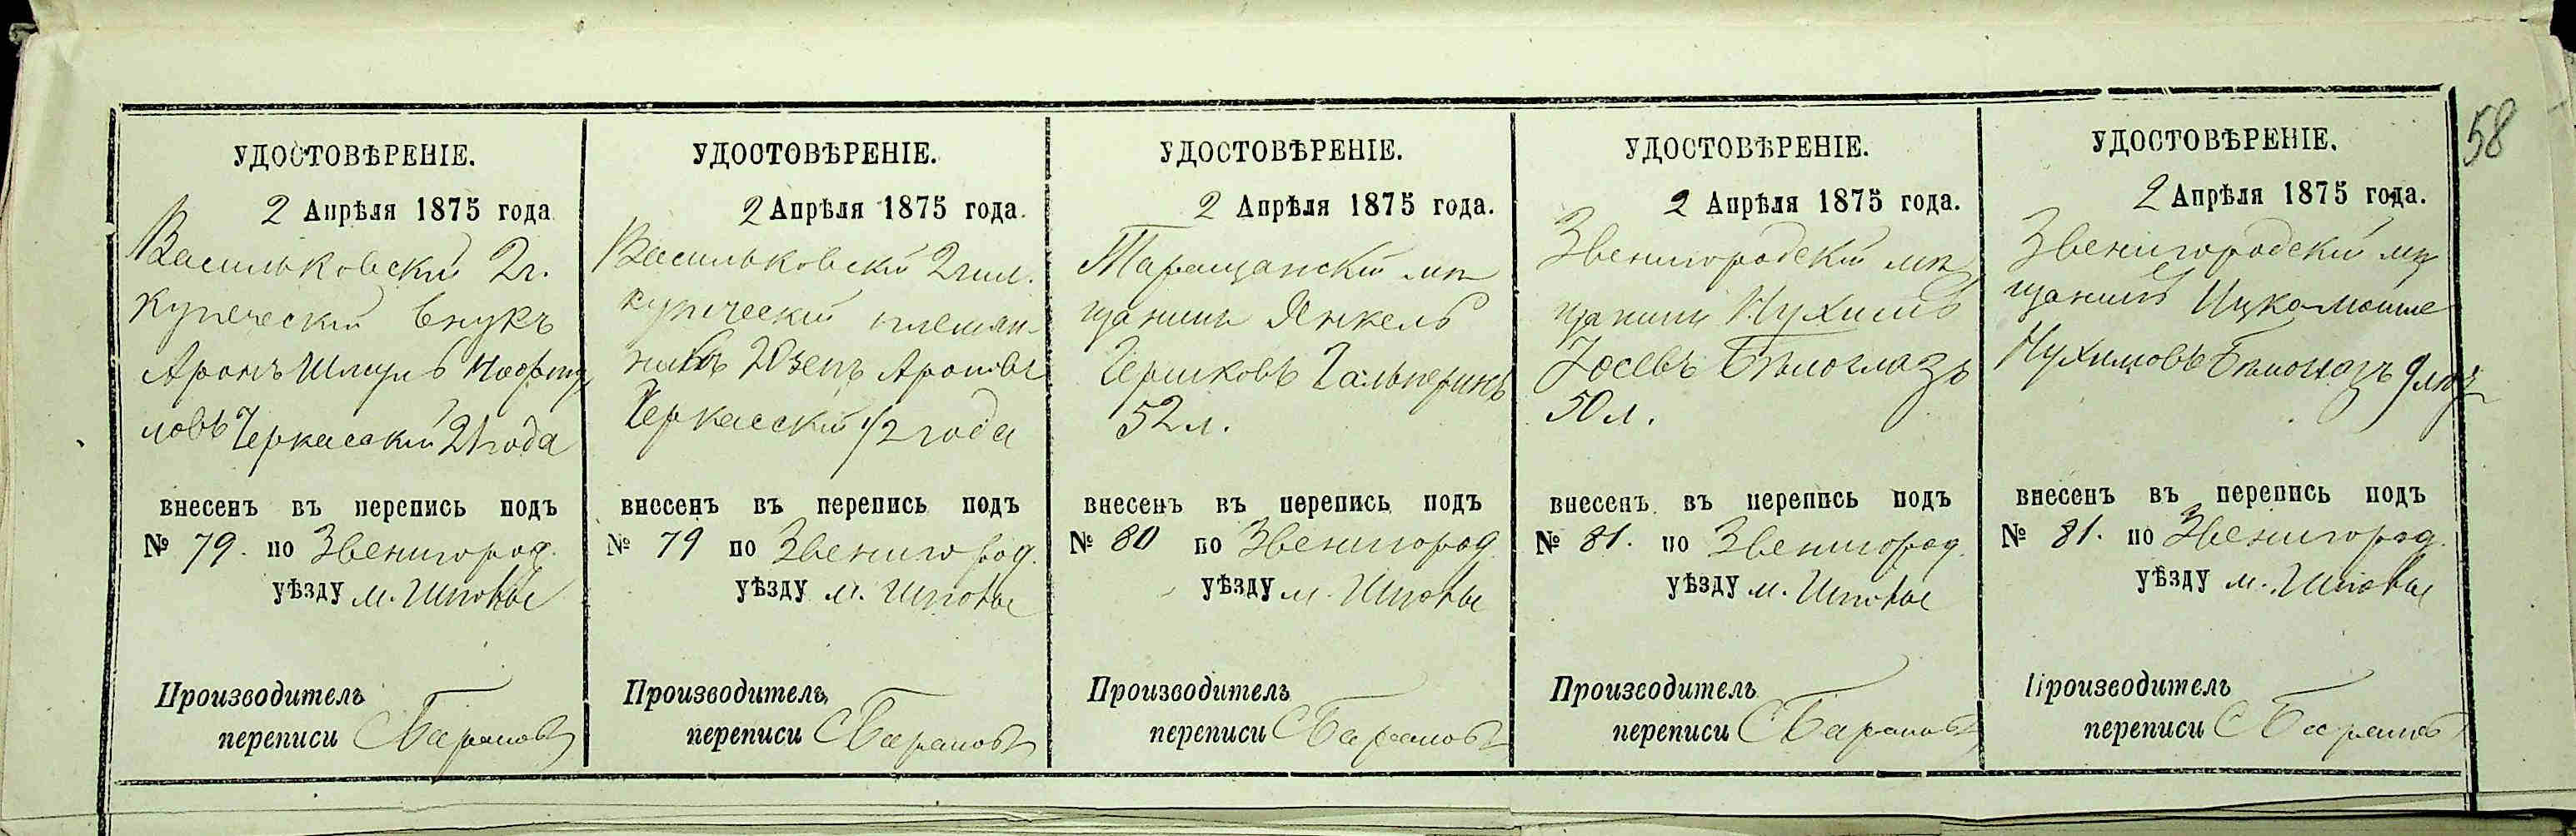 58
УДОСТОВѢРЕНІЕ.
2 Апрѣля 1875 года
Васильковскій 2г.
купеческій внукъ
Аронъ Шмуль
ловъ Черкасскій 21 года
внесенъ въ перепись подъ
№ 79. по Звенигород.
уѣзду м. Шполы
Производитель
переписи С Барановъ
УДОСТОВѢРЕНІЕ.
2 Апрѣля 1875 года.
Васильковскій 2 гил.
купеческій племян-
никъ Юзепъ Ароновъ
Черкасскій 1/2 года
внесенъ въ перепись подъ
№ 79 по Звенигород.
уѣзду м. Шполы
Производитель
переписи С Барановъ
УДОСТОВѢРЕНІЕ.
2 Апрѣля 1875 года.
Таращанскій мѣ
щанинъ Янкель
Гершковъ Гальперинъ
52 л.
внесенъ въ перепись подъ
№ 80 по Звенигород.
уѣзду м. Шполы
Производитель
переписи С Барановъ
УДОСТОВѢРЕНІЕ.
2 Апрѣля 1875 года.
Звенигородскій мѣ
щанинъ Нухимъ
Іосевъ Бѣлоглазъ
50 л.
внесенъ въ перепись подъ
№ 81. по Звенигород.
уѣзду м. Шполы
Производитель
переписи С Барановъ
УДОСТОВѢРЕНІЕ.
2 Апрѣля 1875 года.
Звенигородскій мѣ
щанинъ Ицко-Мошне
Нухимовъ Бѣлоглазъ 9 лѣтъ
внесенъ въ перепись подъ
№ 81. по Звенигород.
уѣзду м. Шполы
Производитель
переписи С Барановъ